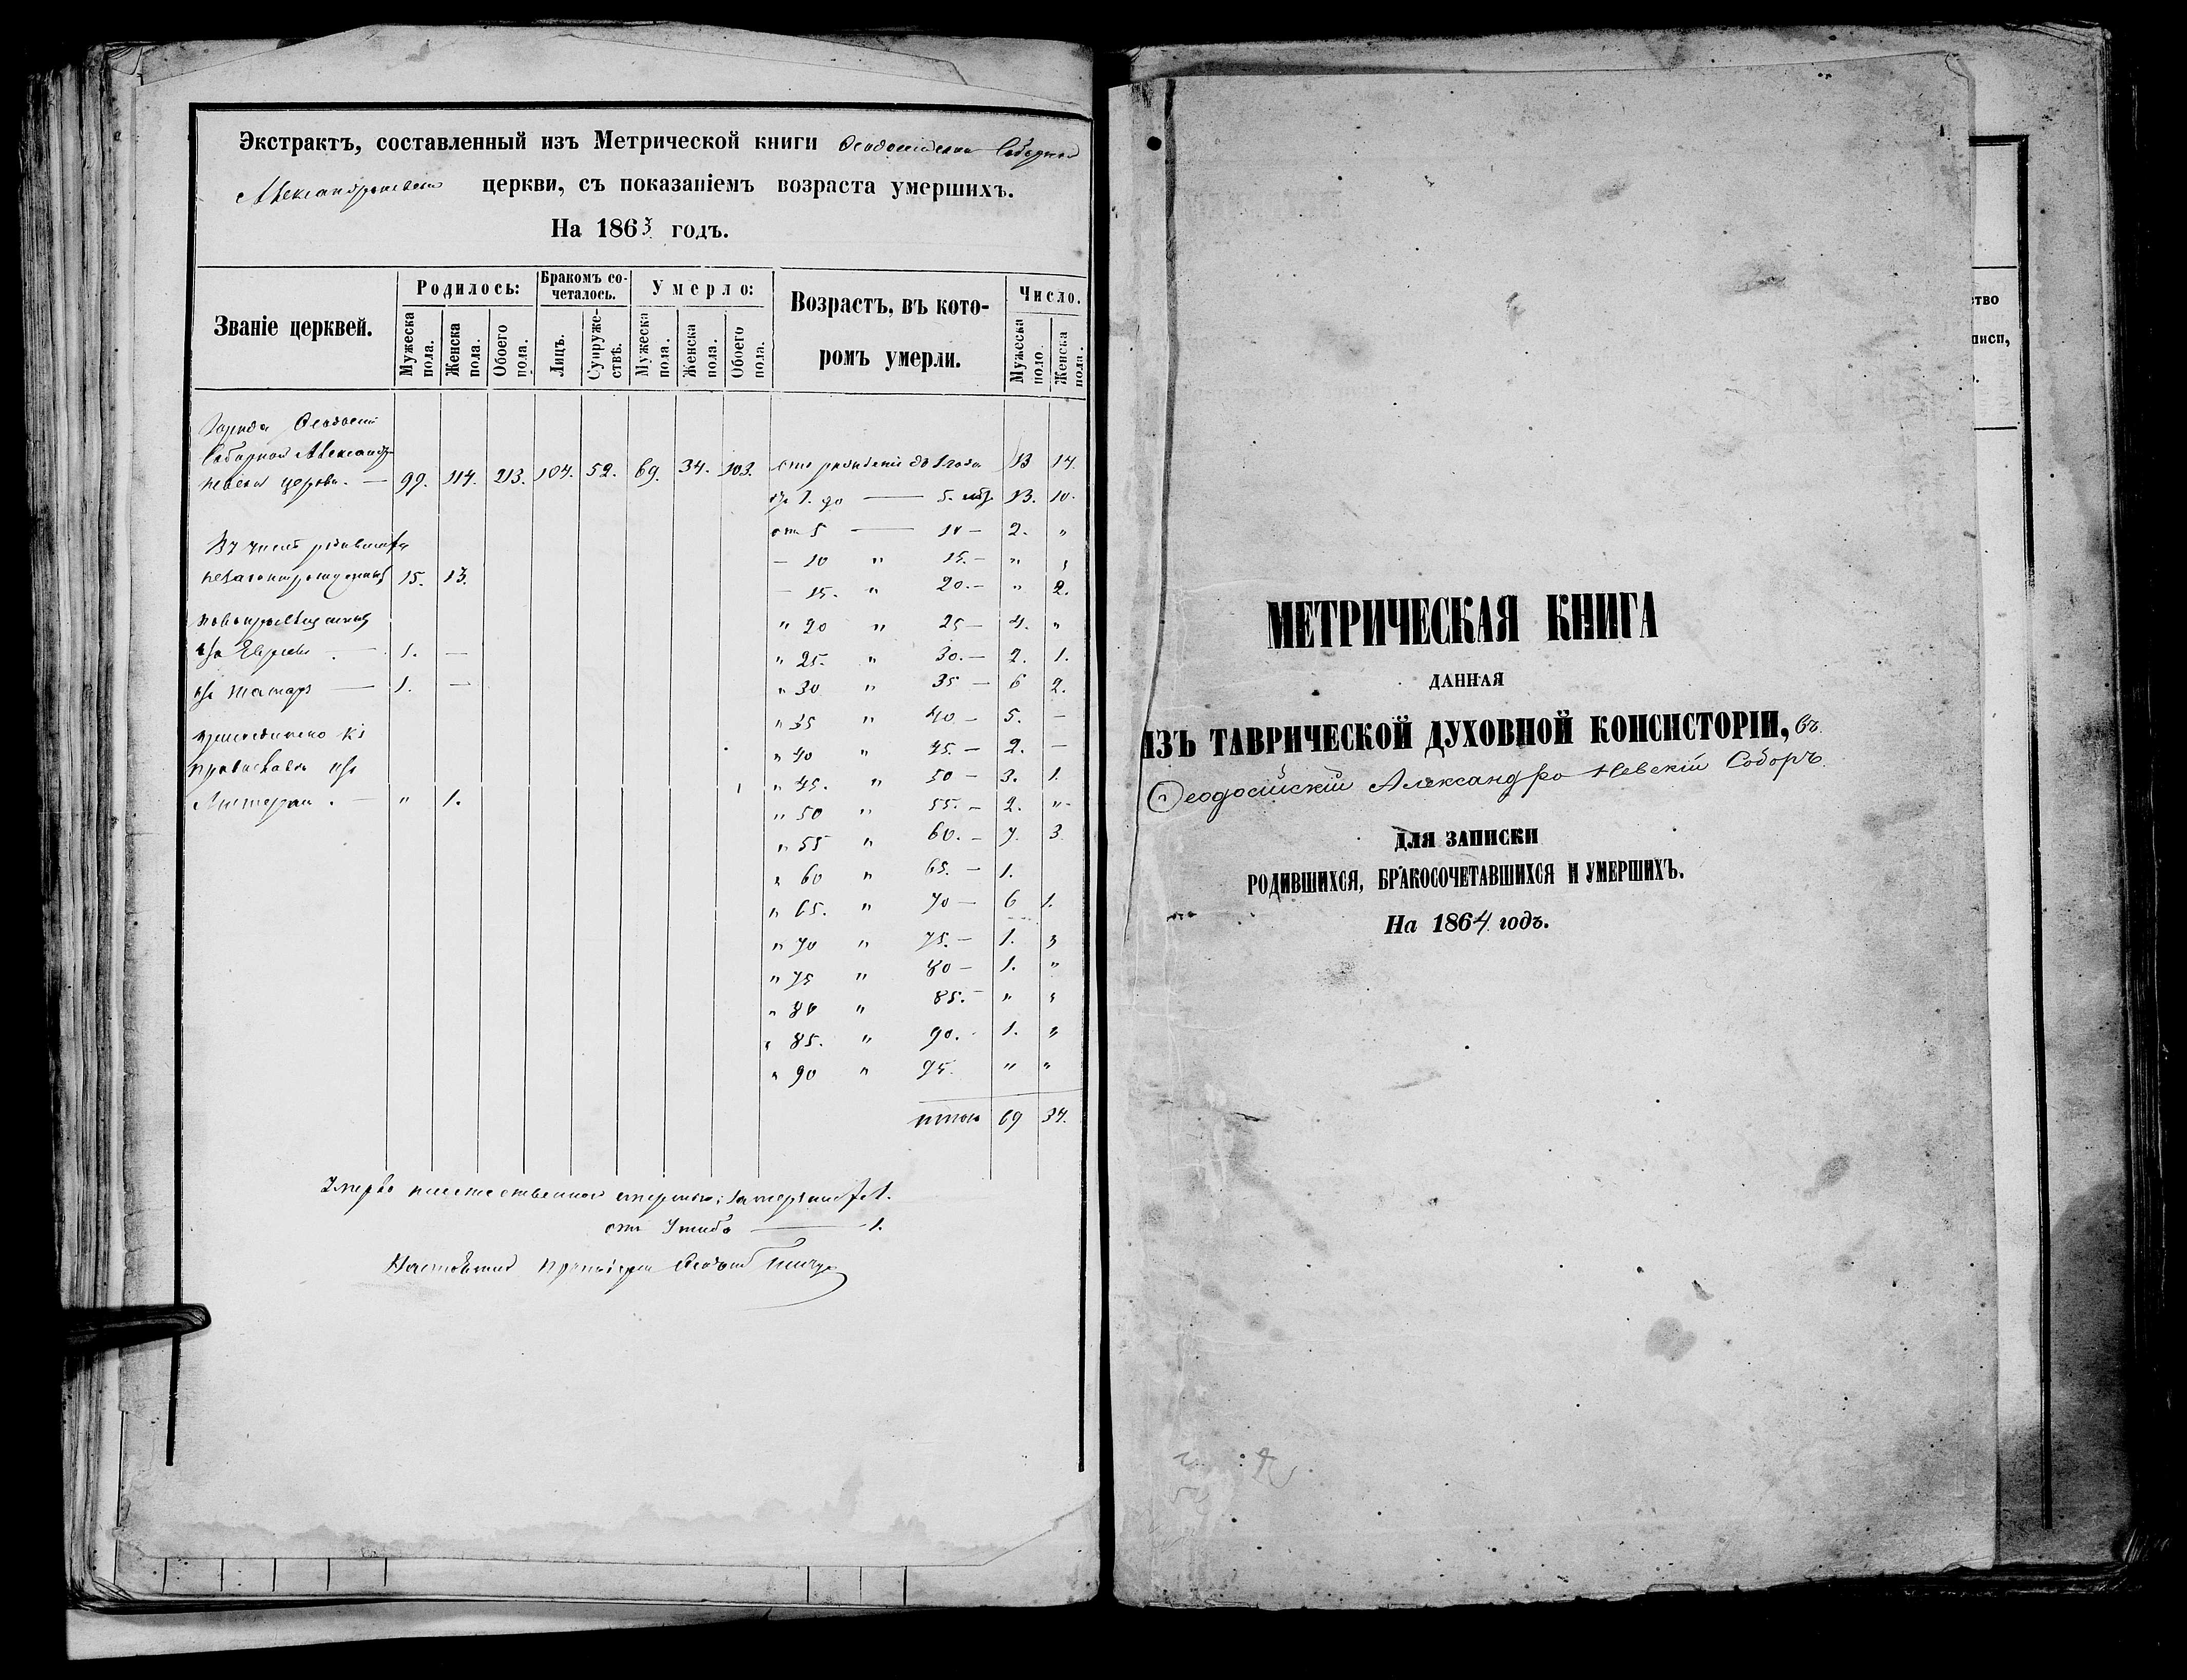 Экстрактъ, составленный изъ Метрической книги Ѳеодосійской Соборной
Александроневской церкви, съ показаніемъ возраста умершихъ.
На 1863 годъ.
Званіе церквей. Родилось: Бракомъ со-четалось. Умерло: Возрастъ, въ кото-ромъ умерли. Число.
Мужеска пола. Женска пола. Обоего пола. Лицъ. Супруже-ствъ. Мужеска пола. Женска пола. Обоего пола. Мужеска поло. Женска пола.
Города Ѳеодосіи
Соборной Александро-
невской церкви. — 99. 114. 213. 104. 52. 69. 34. 103. отъ рожденія до 1 года 13 14.
отъ 1. до — 5. 13. 10.
отъ 5 — 10 — 2. "
Въ числѣ родившихся
— 10 " 15. — " "
незаконнорожденныхъ 15. 13.
— 15. " 20. — " 2.
новопросвѣщенныхъ
" 20 " 25 — 4. "
изъ Евреевъ — 1. —
" 25. " 30. — 2. 1.
изъ татаръ — 1. —
" 30 " 35 — 6 2.
" 35 " 40 — 5. —
присоединено къ
" 40 " 45. — 2. —
православію изъ
" 45. " 50 — 3. 1.
Лютеранъ. — " 1.
" 50 " 55. — 2. "
" 55 " 60. — 7. 3
" 60 " 65. — 1.
" 65. " 70 — 6 1.
" 70 " 75. — 1. "
" 75 " 80 — 1. "
" 80 " 85. — " "
" 85. " 90. 1. "
" 90 " 95. " "
итого 69 34.
Умерло неестественною смертію: 1.
отъ Ушиба — 1.
Настоятель Протоіерей
МЕТРИЧЕСКАЯ КНИГА
ДАННАЯ
ИЗЪ ТАВРИЧЕСКОЙ ДУХОВНОЙ КОНСИСТОРІИ, въ
Ѳеодосійскій Александро Невскій Соборъ.
ДЛЯ ЗАПИСКИ
РОДИВШИХСЯ, БРАКОСОЧЕТАВШИХСЯ И УМЕРШИХЪ.
На 1864 годъ.
ство
писи,